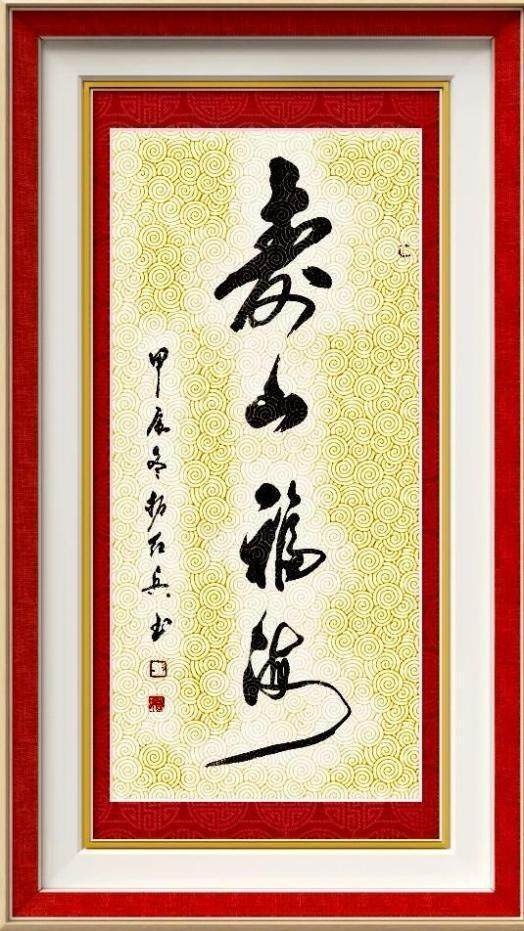 寿山福海
甲辰冬 石兵书